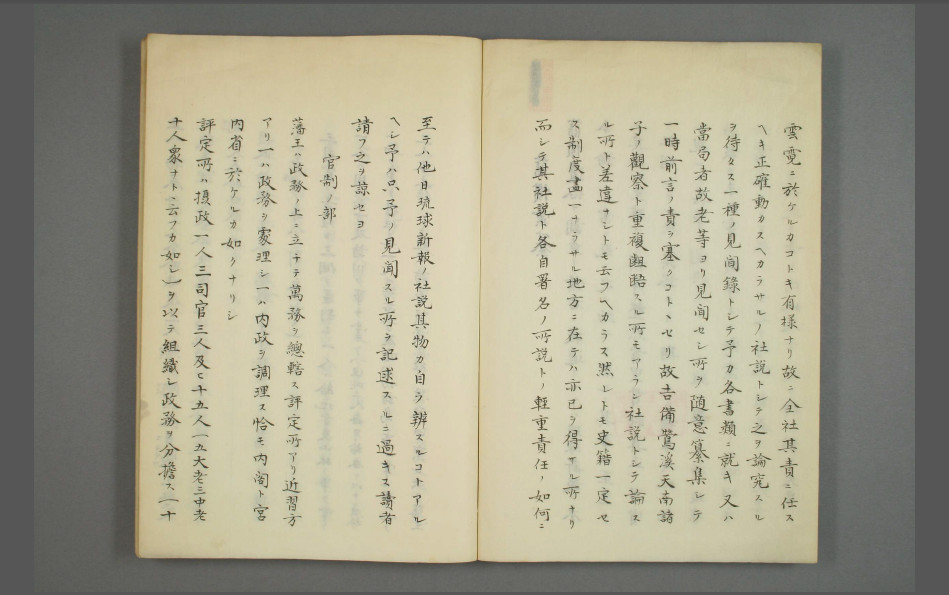 雲霓ニ於ケルカコトキ有様ナリ故ニ全社其責ニ任ス
ヘキ正確動カスヘカラサルノ社説トシテ之ヲ論究スル
ヲ待タス一種ノ見聞録トシテ予カ各書類ニ就キ又ハ
當局者故老等ヨリ見聞セシ所ヲ随意纂集シテ
一時前言ノ責ヲ塞クコトヽセリ故吉備鶯溪天南諸
子ノ觀察ト重複齟齬スル所モアラン社説トシテ論ス
ル所ト差違ナシトモ云フヘカラス然レトモ史籍一定セ
ス制度畫一ナラサル地方ニ在テハ亦已ヲ得サル所ナリ
而シテ其社説ト各自署名ノ所説トノ輕重責任ノ如何ニ
至テハ他日琉球新報ノ社説其物カ自ラ辨スルコトアル
ヘシ予ハ只予ノ見聞スル所ヲ記述スルニ過キス讀者
請フ之ヲ諒セヨ
官制ノ部
藩王ハ政務ノ上ニ立チテ萬務ヲ總轄ス評定所アリ近習方
アリ一ハ政務ヲ處理シ一ハ内政ヲ調理ス恰モ内閣ト宮
内省ニ於ケルカ如クナリシ
評定所ハ摂政一人三司官三人及ヒ十五人(五大老三中老
十人衆ナトヽ云フカ如シ)ヲ以テ組織シ政務ヲ分擔ス(一十